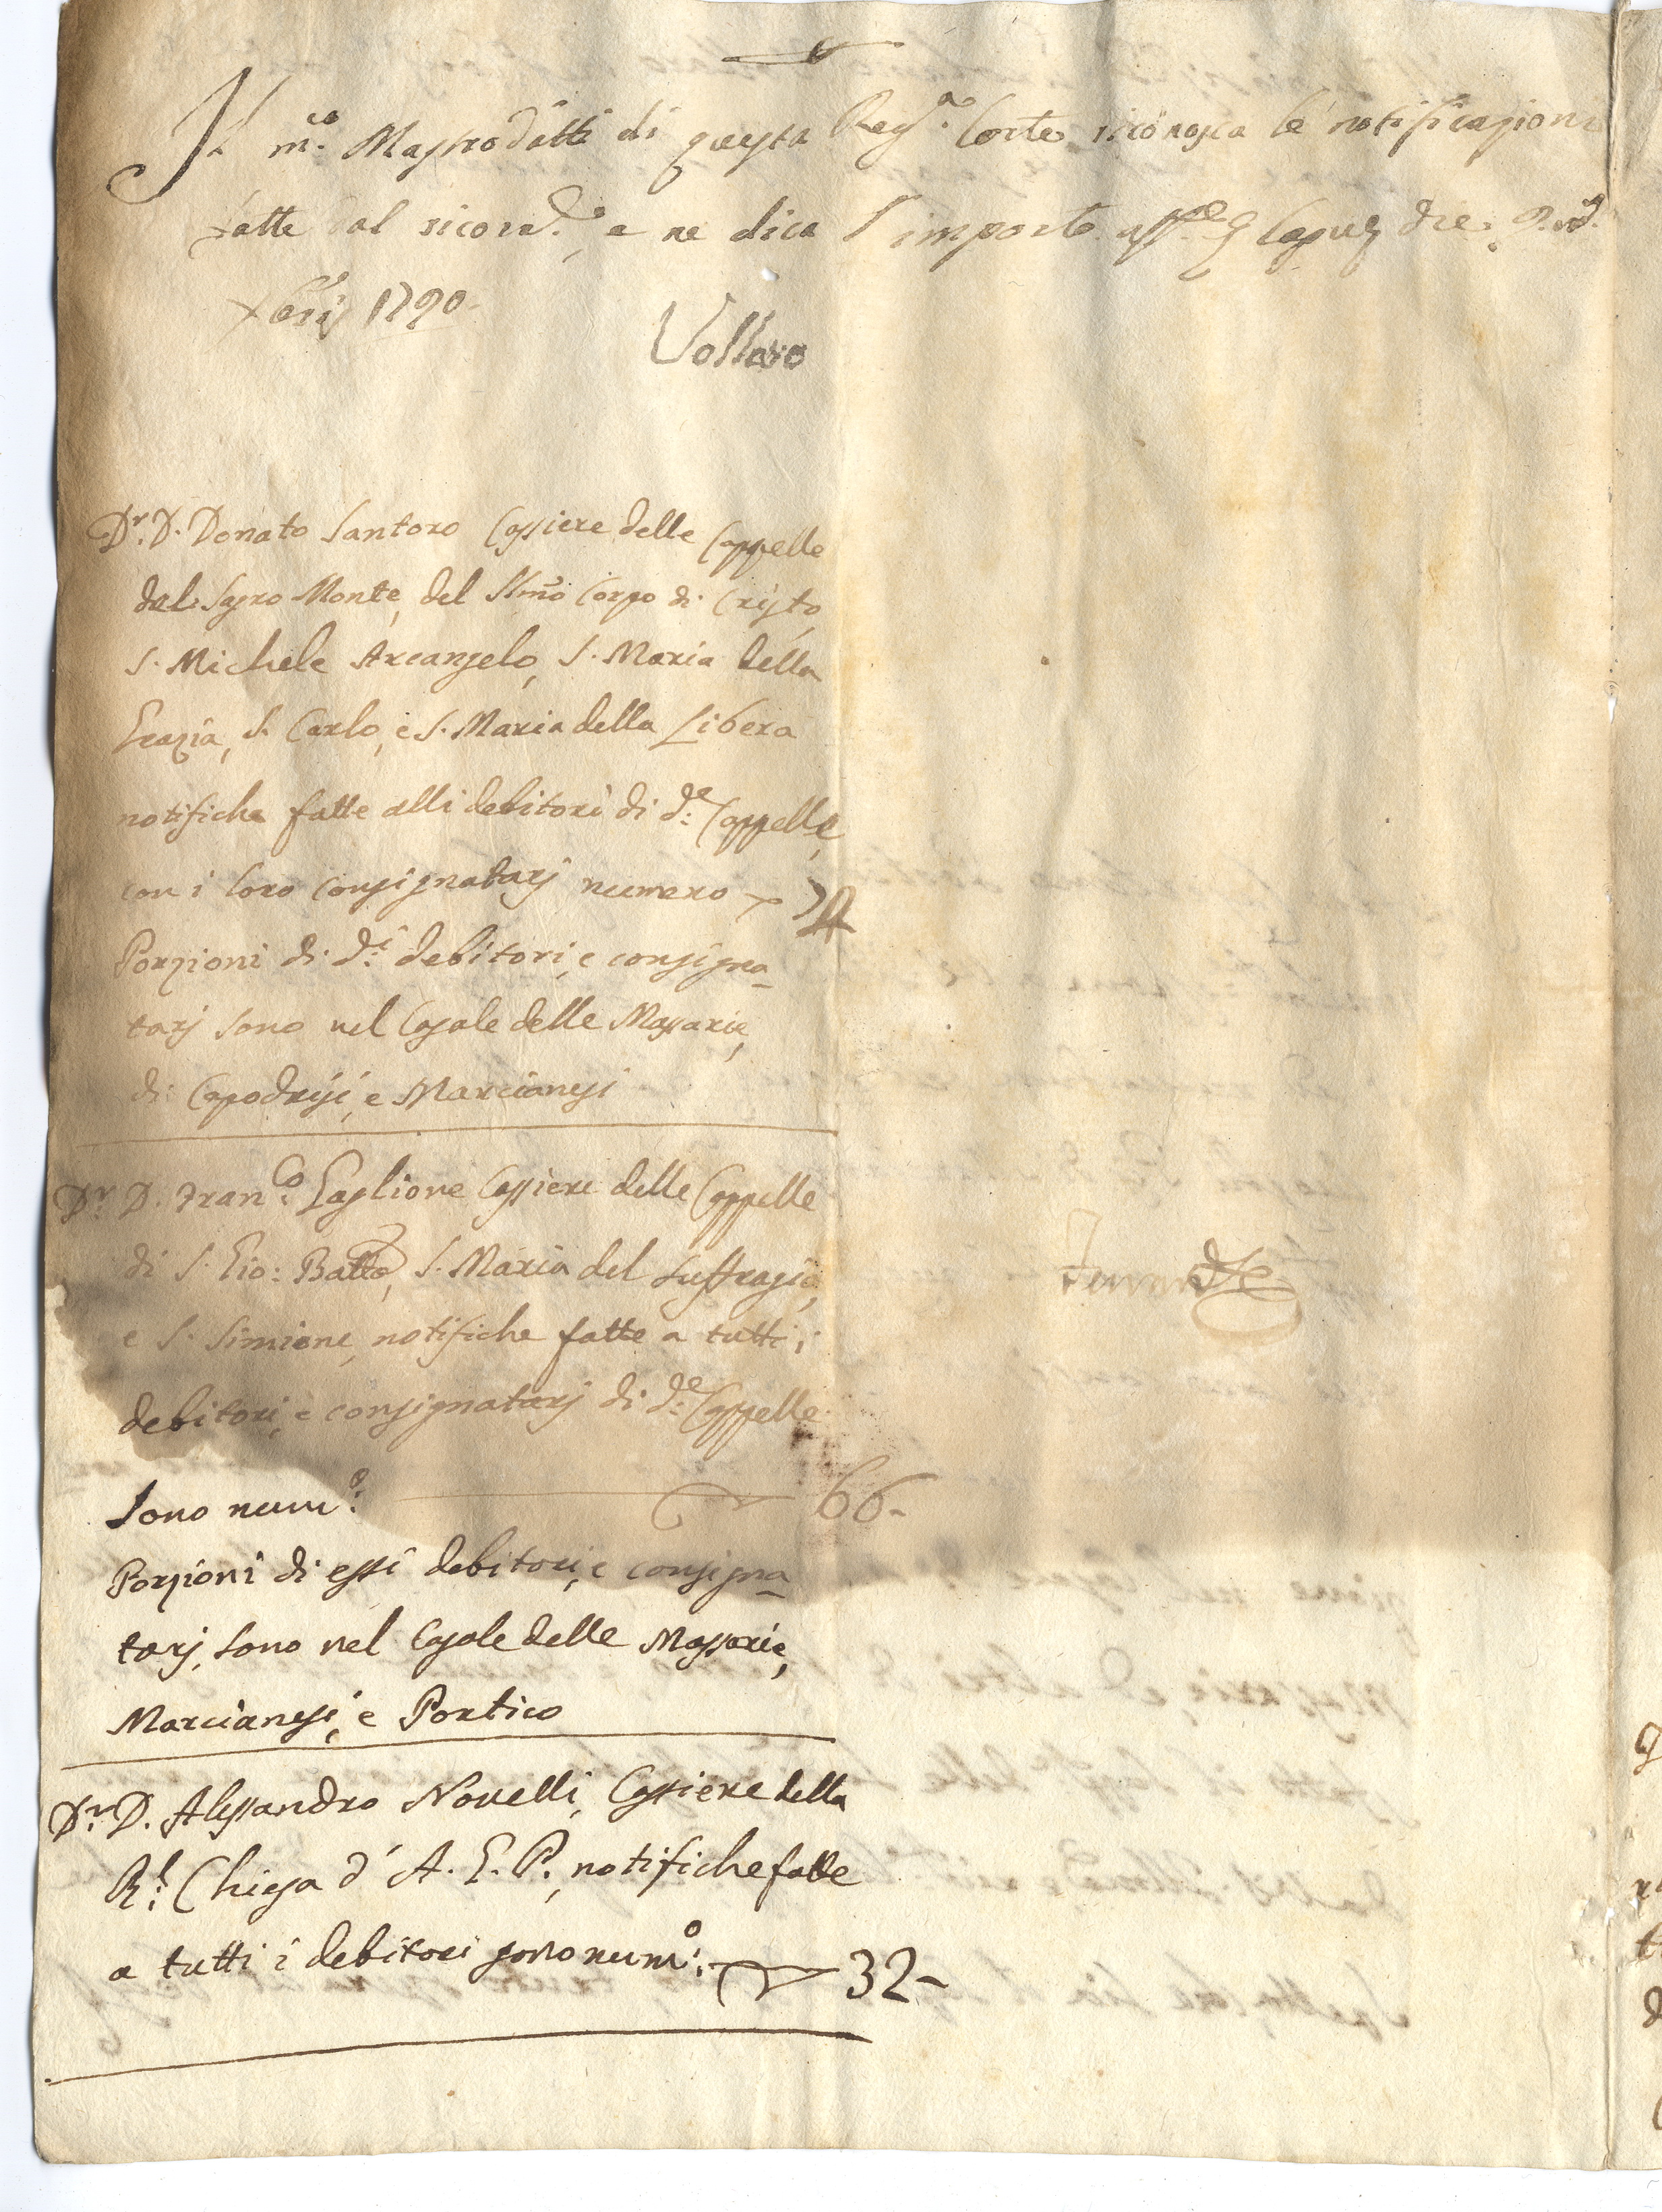 Il m.co Mastrodatti di questa Reg.a Corte riconosca le notificazioni
fatte dal ricorr.e, e ne dica l'importo
Xbris 1790.
Vollaro
D.r D. Donato Santoro Cassiere delle Cappelle
del Sagro Monte, del SSmo Corpo di Cristo,
S. Michele Arcangelo, S. Maria della
Grazia, S. Carlo, e S. Maria della Libera
notifiche fatte alli debitori di d.e Cappelle,
con i loro consignatarj numero
Porzioni di d.i debitori, e consigna-
tarj sono nel Casale delle Massarie,
di Capodrisi, e Marcianesi
D.r D. Fran.co Gaglione Cassiere delle Cappelle
di S. Gio: Batta, S. Maria del Suffragio,
e S. Simione, notifiche fatte a tutti i
debitori, e consignatarj di d.e Cappelle
Sono num.o 66-
Porzioni di essi debitori, e consigna-
tarj, sono nel Casale delle Massarie,
Marcianesi, e Portico
D.r D. Alessandro Novelli, Cassiere della
R.l Chiesa d' A. G. P., notifiche fatte
a tutti i debitori sono num.o 32-